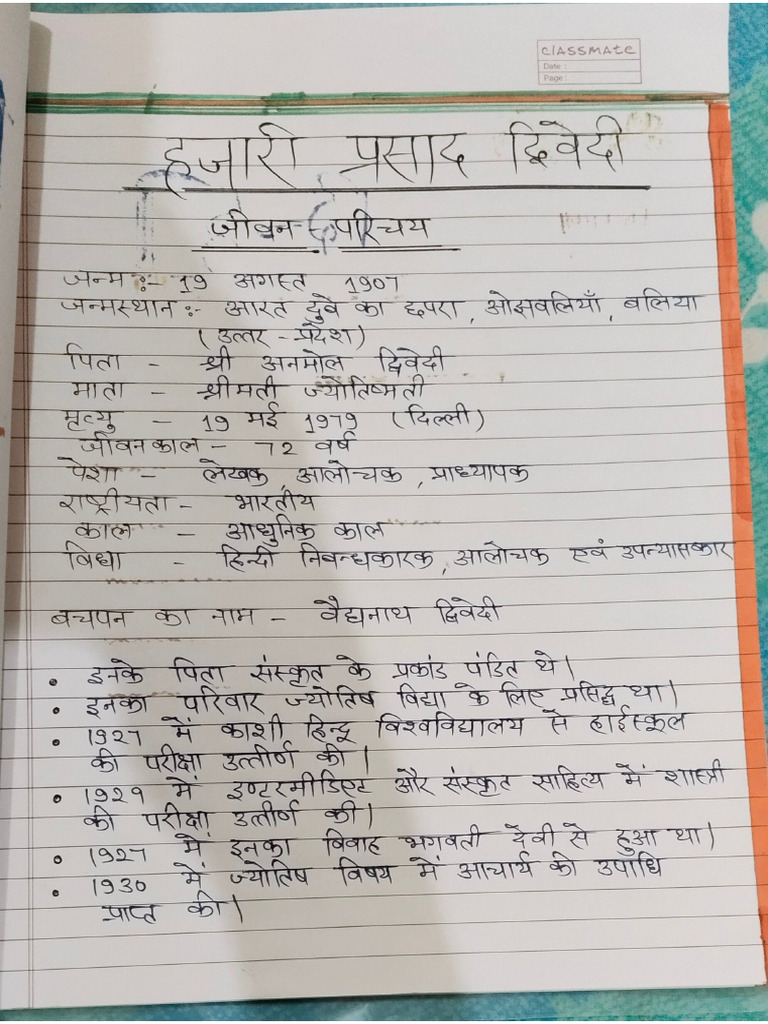 classmate
Date :
Page :
हजारी प्रसाद द्विवेदी
जीवन - परिचय
जन्म :- 19 अगस्त 1907
जन्मस्थान :- आरत दुवे का छपरा, ओझवलियाँ, बलिया
(उत्तर - प्रदेश)
पिता - श्री अनमोल द्विवेदी
माता - श्रीमती ज्योतिष्मती
मृत्यु - 19 मई 1979 (दिल्ली)
जीवनकाल - 72 वर्ष
पेशा - लेखक, आलोचक, प्राध्यापक
राष्ट्रीयता - भारतीय
काल - आधुनिक काल
विधा - हिन्दी निबन्धकारक, आलोचक एवं उपन्यासकार
बचपन का नाम - वैद्यनाथ द्विवेदी
• इनके पिता संस्कृत के प्रकांड पंडित थे।
• इनका परिवार ज्योतिष विद्या के लिए प्रसिद्ध था।
• 1927 में काशी हिन्दू विश्वविद्यालय से हाईस्कूल
की परीक्षा उत्तीर्ण की।
• 1929 में इण्टरमीडिएट और संस्कृत साहित्य में शास्त्री
की परीक्षा उत्तीर्ण की।
• 1927 में इनका विवाह भगवती देवी से हुआ था।
• 1930 में ज्योतिष विषय में आचार्य की उपाधि
प्राप्त की।